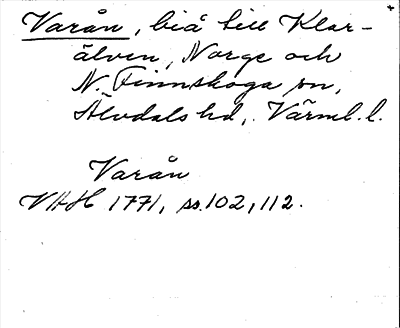 Varån, biå till Klar-
älven, Norge och
N. Finnskoga sn,
Älvdals hd, Värml. l.
Varån
VAH 1771, ss. 102, 112.